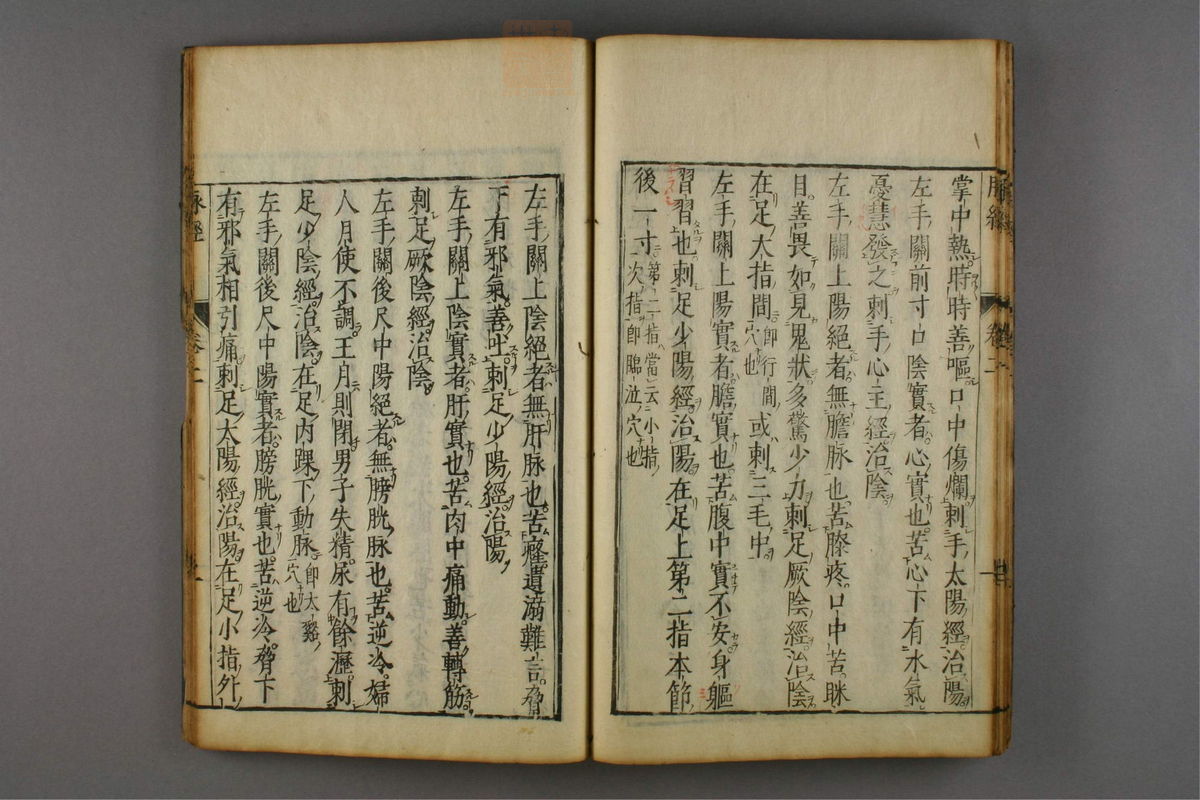 脉經 卷二
掌中熱時時善嘔口中傷爛刺手太陽經治陽
左手關前寸口陰實者心實也苦心下有水氣
憂恚發之刺手心主經治陰
左手關上陽絕者無膽脉也苦膝疼口中苦眯
目善畏如見鬼狀多驚少力刺足厥陰經治陰
在足大指間即行間穴也或刺三毛中
左手關上陽實者膽實也苦腹中實不安身軀
習習也刺足少陽經治陽在足上第二指本節
後一寸第二指當云小指次指即臨泣穴也
左手關上陰絕者無肝脉也苦癃遺溺難言脅
下有邪氣善吐刺足少陽經治陽
左手關上陰實者肝實也苦肉中痛動善轉筋
刺足厥陰經治陰
左手關後尺中陽絕者無膀胱脉也苦逆冷婦
人月使不調王月則閉男子失精尿有餘瀝刺
足少陰經治陰在足內踝下動脉即太谿穴也
左手關後尺中陽實者膀胱實也苦逆冷脅下
有邪氣相引痛刺足太陽經治陽在足小指外
脉經 卷二